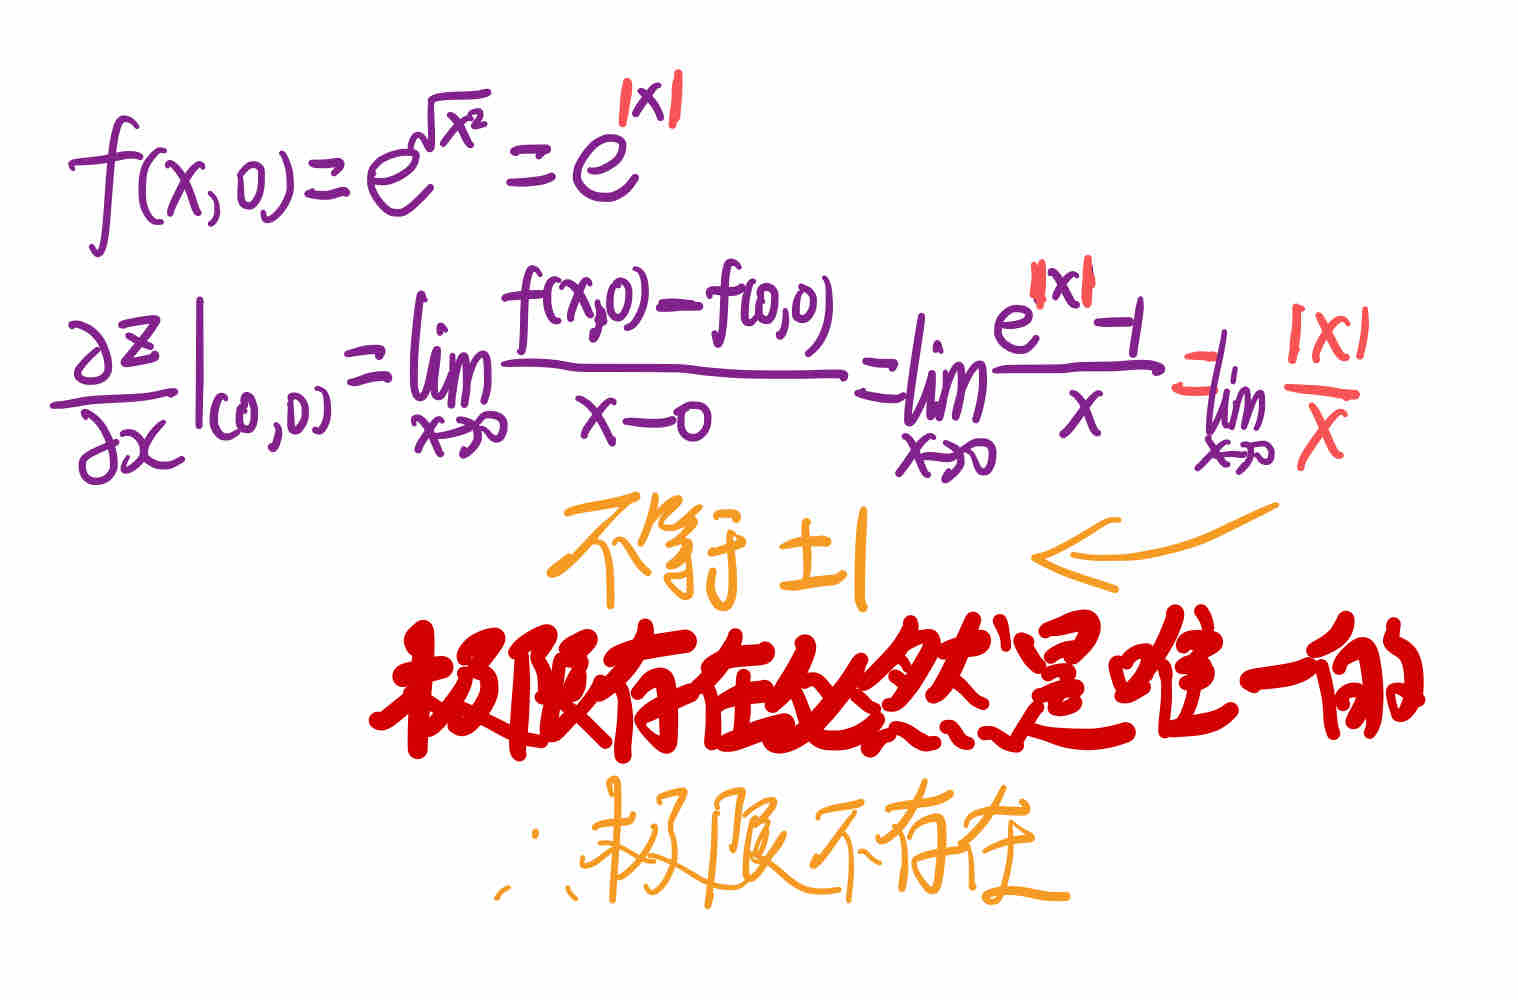 f(x,0)=e^√x² =e^|x|
∂z/∂x|(0,0) = lim x→0 f(x,0)-f(0,0)/x-0 = lim x→0 e^|x|-1/x = lim x→0 |x|/x
不等于 ±1
极限存在必然是唯一的
∴极限不存在